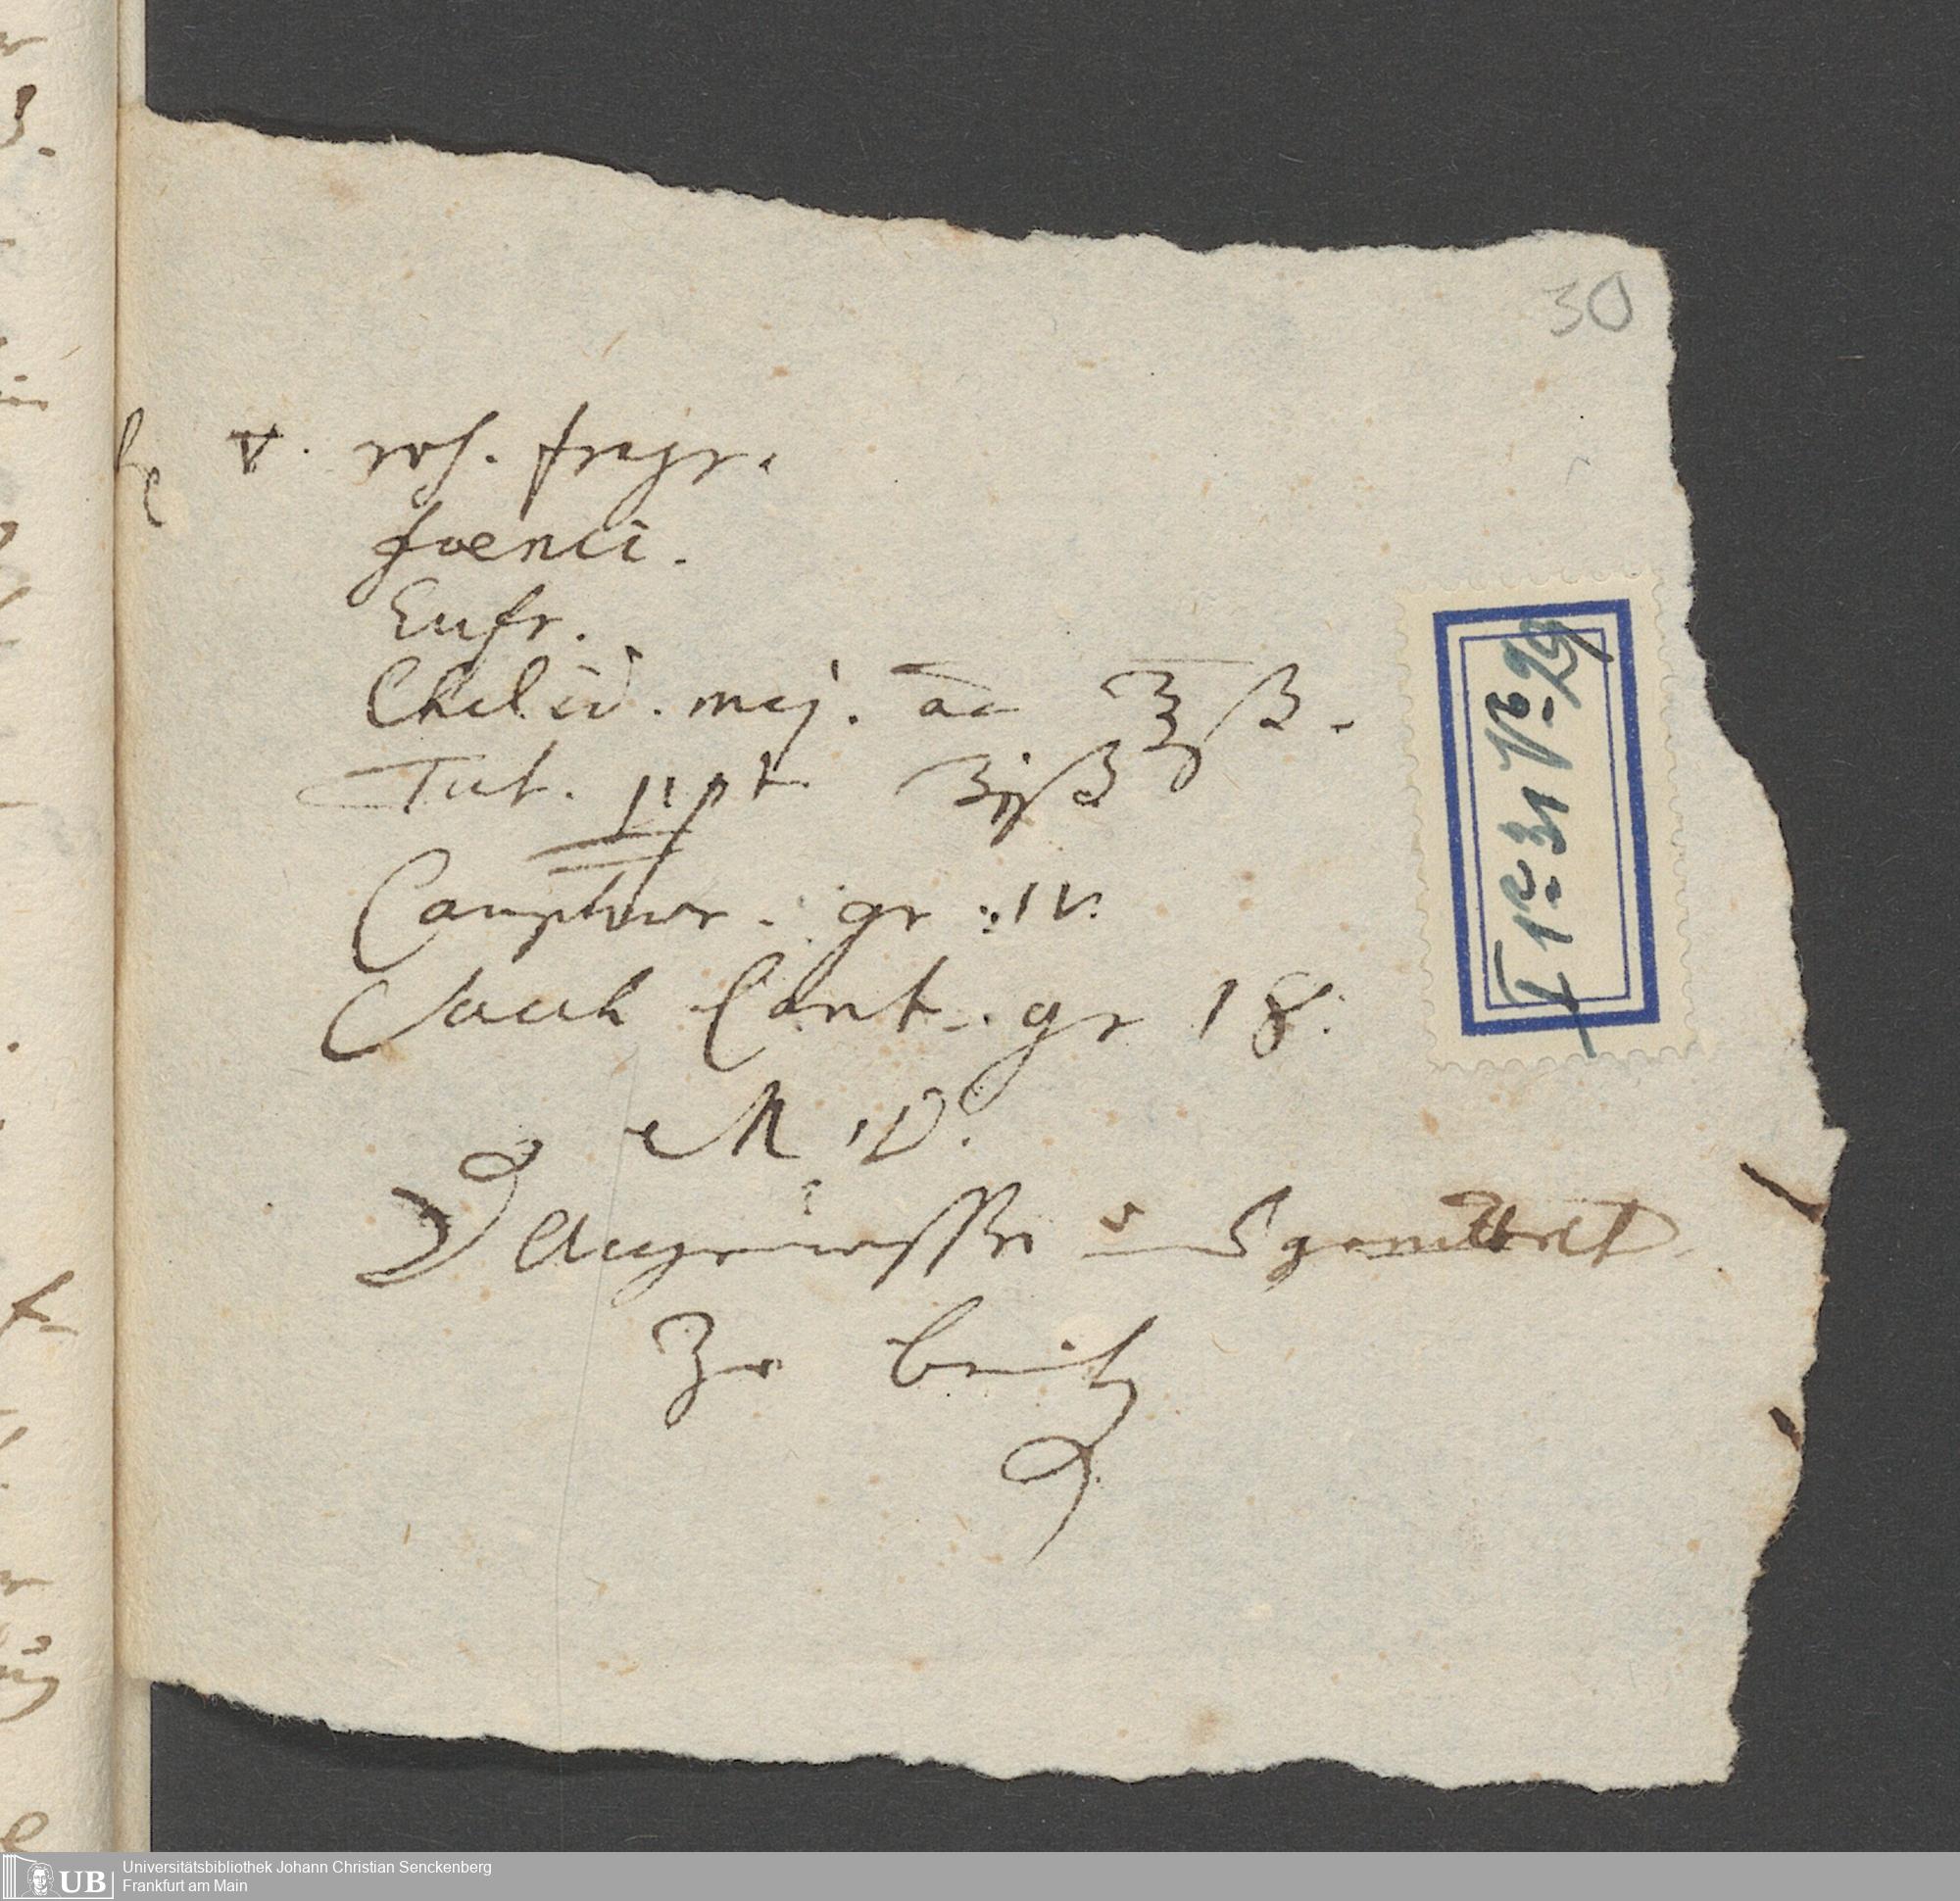 30
℞ ▽. ros. fragr.
foenic.
Eufr.
Chelid. maj. aa ℥ß.
Tut. ppt ʒjß
Camphor. gr. iv.
Sacch Cant. gr 18.
M D.
Augenwasser
zu
I Nr. 31 No. 29
UB Universitätsbibliothek Johann Christian Senckenberg
Frankfurt am Main